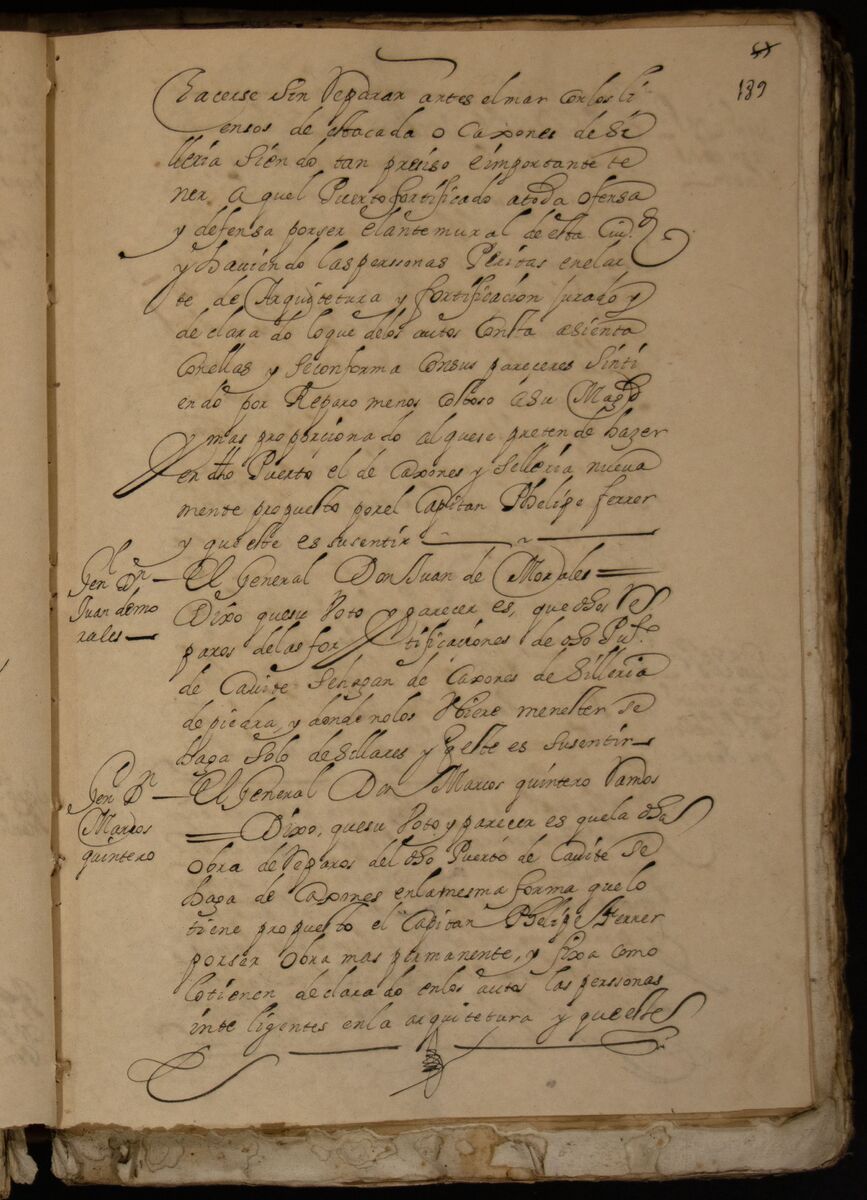 189
hacerse sin Reparar antes el mar con los li
ensos de estacada o Caxones de Si
lleria siendo tan presiso e importante te
ner a quel Puerto fortificado a toda ofensa
y defensa por ser el antemural de esta Ciud.
y haviendo las perssonas Peritas en el ar
te de Arquitetura y fortificacion jurado y
de clara do lo que delos autos Consta asienta
Conellas y se conforma Consus pareceres Sinti
endo por Reparo menos costoso a su Magd
y mas proporciona do al que se pretende hazer
en dho Puerto el de Caxones y silleria nueva
mente propuesto por el Capitan Phelipe ferrer
y que este es su sentir
Genl Dn
Juan de mo
rales
El General Don Juan de Morales
Dixo que su Voto y parecer es, que dhos Re
paros delas for tificaciones de dho Pu.to
de Cavite se hagan de Caxones de Silleria
de piedra, y donde no los Vbiere menester se
haga Solo de Sillares y q este es su sentir
Genl Dn
Marcos
quintero
El General Don Marcos quintero Ramos
Dixo, que su Voto y parecer es que la dha
obra de Reparos del dho Puerto de Cavite se
haga de Caxones en la mesma forma que lo
tiene propuesto el Capitan Phelipe Ferrer
por ser obra mas permanente, y fixa como
lo tienen de clara do en los autos las perssonas
inte ligentes en la arquitetura y que este